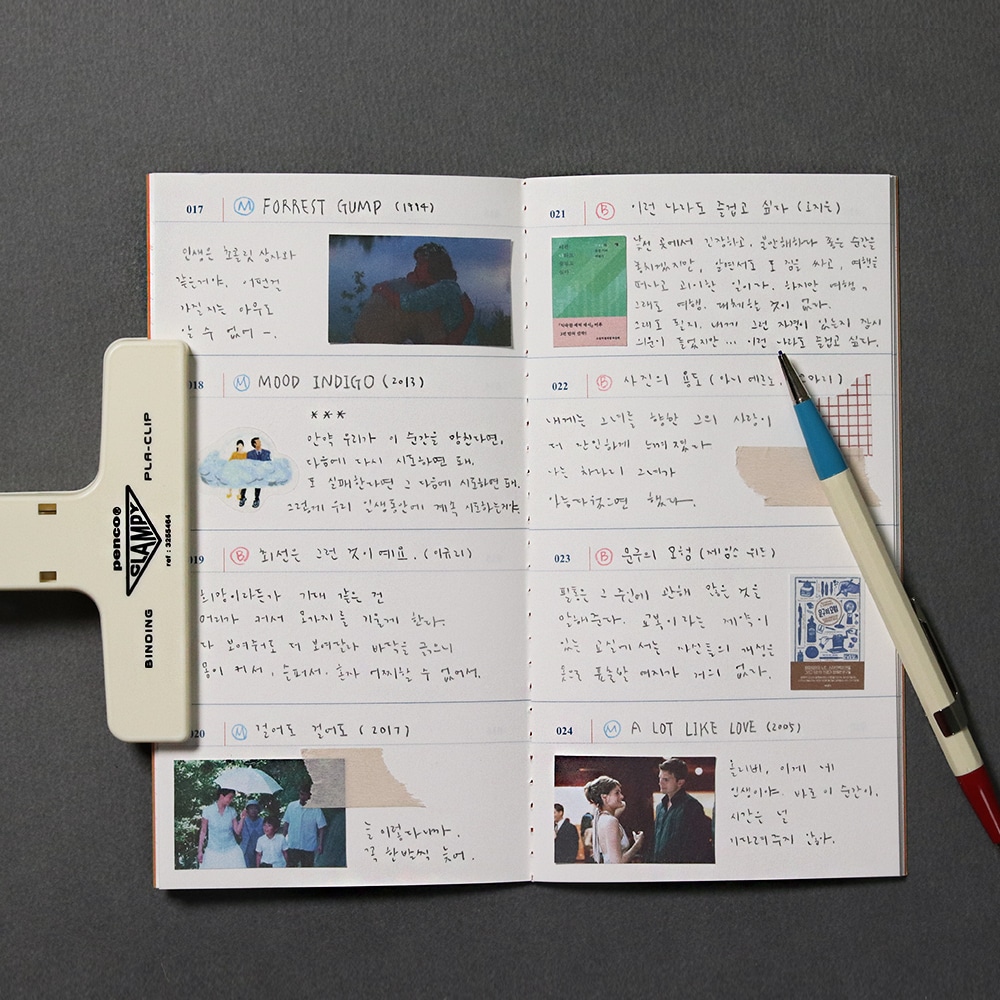 017 M FORREST GUMP (1994)
인생은 초콜릿 상자와
같은거야. 어떤걸
가질지는 아무도
알 수 없어 —.
018 M MOOD INDIGO (2013)
***
만약 우리가 이 순간을 망친다면,
다음에 다시 시도하면 돼.
또 실패한다면 그 다음에 시도하면 돼.
그렇게 우리 인생동안에 계속 시도하는거야.
019 B 최선은 그런 것이에요. (이규리)
희망이라든가 기대 같은 건
머리가 커서 몸까지를 기울게 한다.
다 보여줘도 더 보여달라 바닥을 긁으니
몸이 커서, 슬퍼서. 혼자 어찌할 수 없어서.
020 M 걸어도 걸어도 (2017)
늘 이렇다니까.
꼭 한발씩 늦어.
021 B 이런 나라도 즐겁고 싶다 (오지은)
낯선 곳에서 긴장하고, 불안해하다 좋은 순간을
놓치겠지만, 알면서도 또 짐을 싸고, 여행을
떠나고 괴이한 일이다. 하지만 여행,
그래도 여행. 대체할 것이 없다.
그래도 될지. 내게 그런 자격이 있는지 잠시
의문이 들었지만... 이런 나라도 즐겁고 싶다.
022 B 사진의 용도 (아니 에르노,
내게는 그녀를 향한 그의 사랑이
더 잔인하게 느껴졌다
나는 차라리 그녀가
아늑하였으면 했다.
023 B 문구의 모험 (제임스 워드)
필통은 그 주인에 관해 많은 것을
말해준다. 교복이라는 제약이
있는 교실에서는 자신들의 개성을
옷으로 표출할 여지가 거의 없다.
024 M A LOT LIKE LOVE (2005)
올리버, 이게 네
인생이야. 바로 이 순간이.
시간은 널
기다려주지 않아.
penco®
CLAMPY
ref : 3255464
PLA-CLIP
BINDING